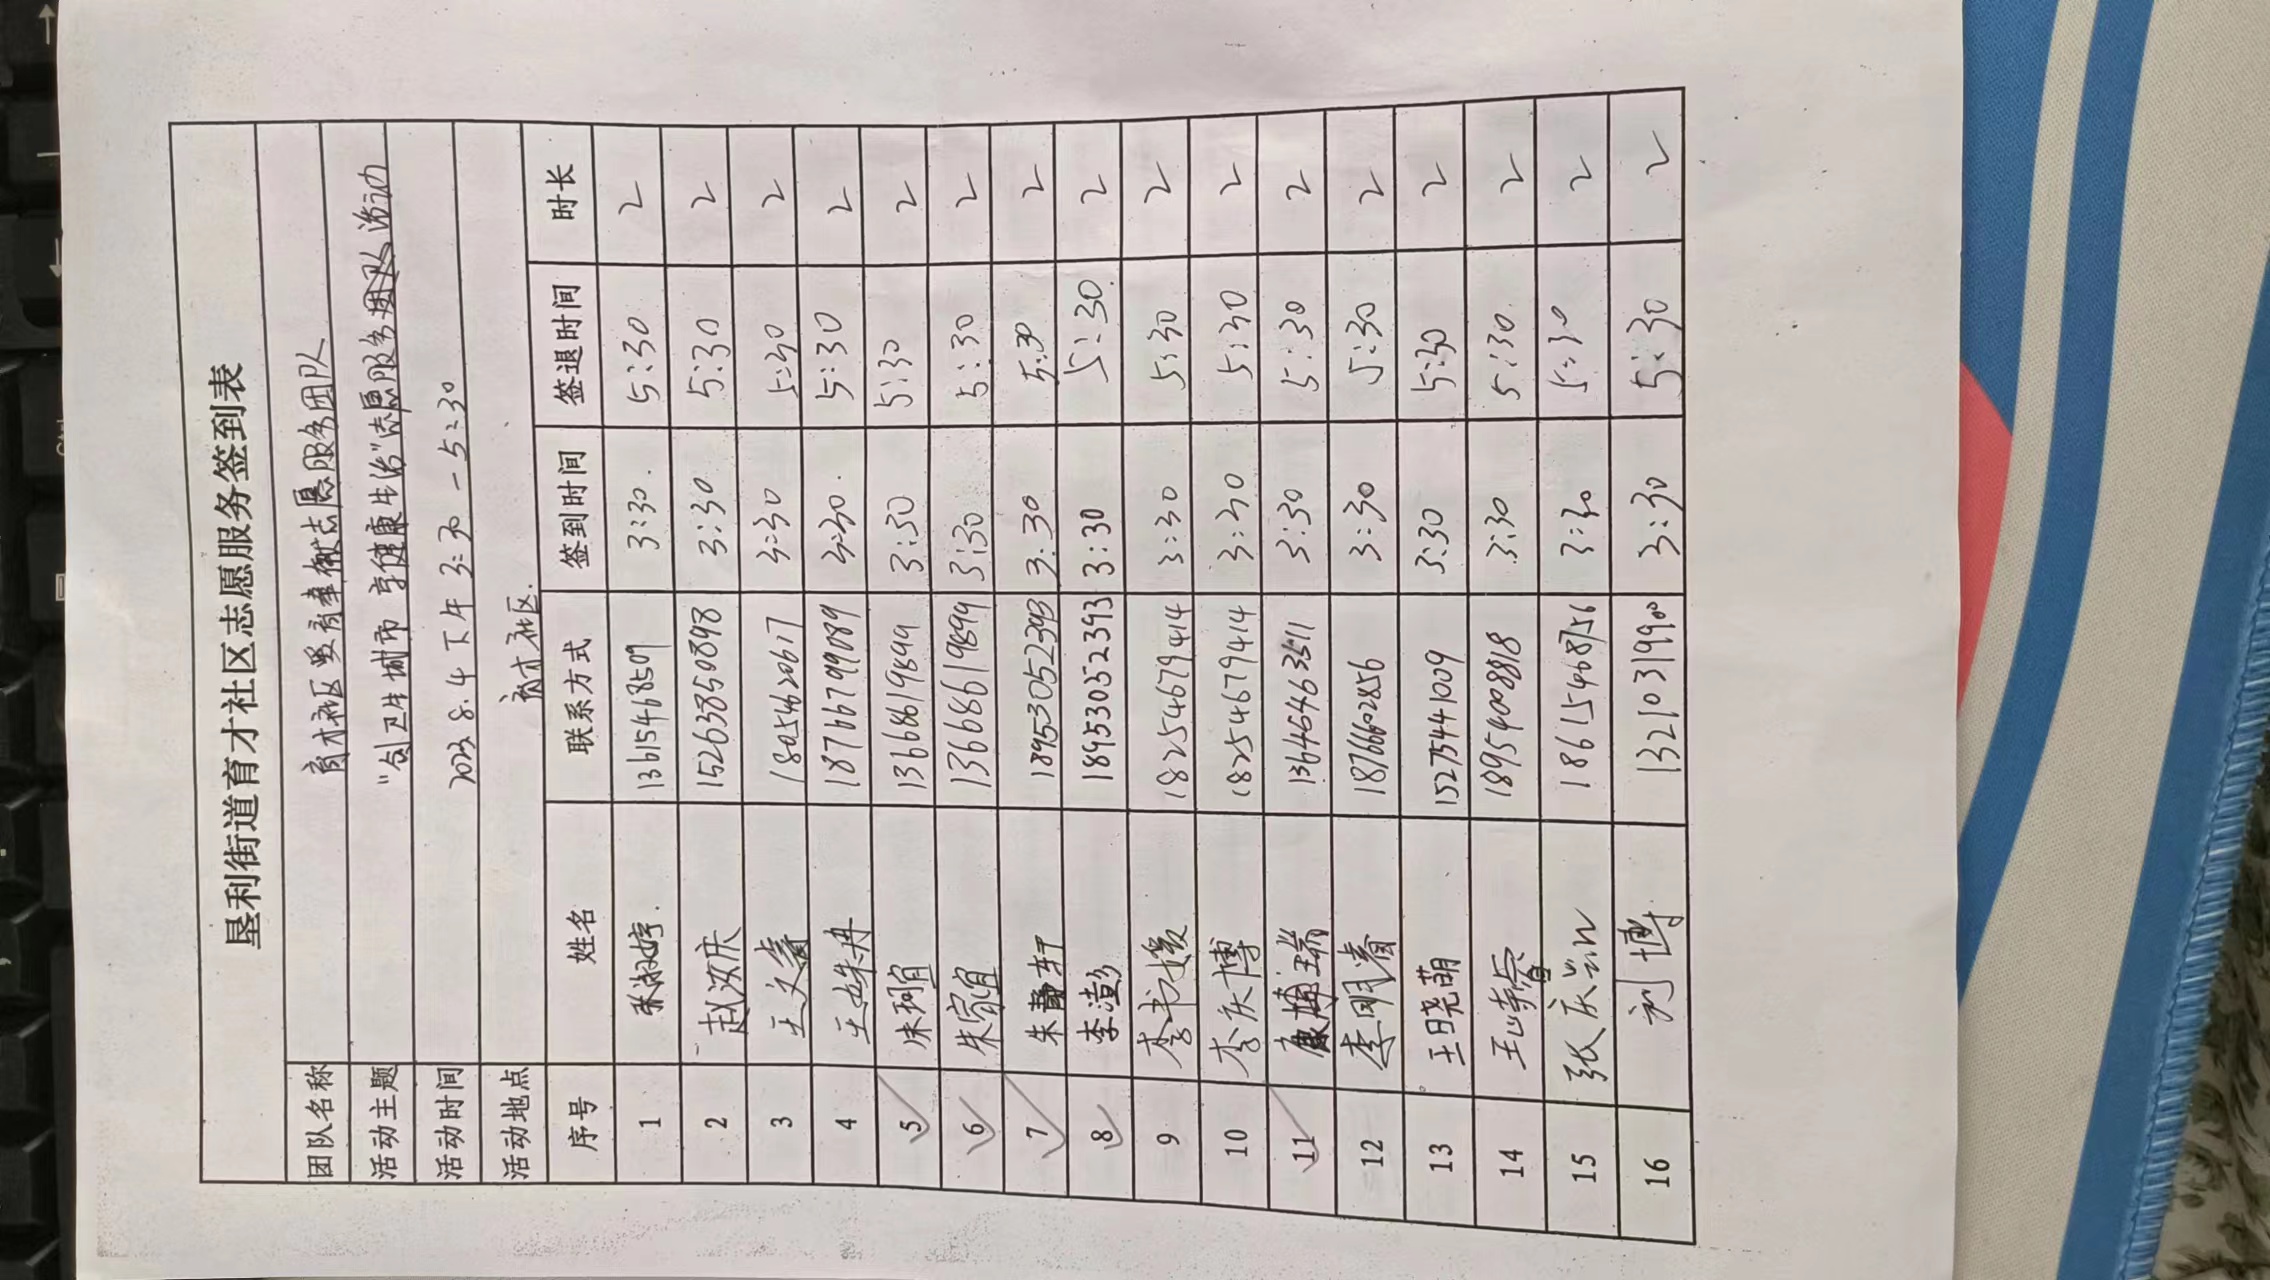 垦利街道育才社区志愿服务签到表
团队名称 育才社区爱薪奉献志愿服务团队
活动主题 "创卫生城市 享健康生活"志愿服务团队活动
活动时间 2023.8.4 下午 3:30-5:30
活动地点 育才社区.
序号 姓名 联系方式 签到时间 签退时间 时长
1 张淑婷. 13615468509 3:30. 5:30 2
2 赵汝庆 15263850898 3:30 5:30 2
3 王文 18054620617 3:30 5:30 2
4 王姝冉 18766799089 3:30. 5:30 2
5 朱珂宜 13668619899 3:30 5:30 2
6 朱家宜 13668619899 3:30 5:30 2
7 朱静轩 18953052393 3:30 5:30 2
8 李澎 18953052393 3:30 5:30 2
9 李书媛 18254679414 3:30 5:30 2
10 李庆博 18254679414 3:30 5:30 2
11 康埔瑞 13646463511 3:30 5:30 2
12 李明春 18766602856 3:30 5:30 2
13 王晓萌 15275441009 3:30 5:30 2
14 王 18954008818 3:30 5:30. 2
15 张庆 18615468756 3:30 5:30 2
16 刘博 13210319900 3:30 5:30 2